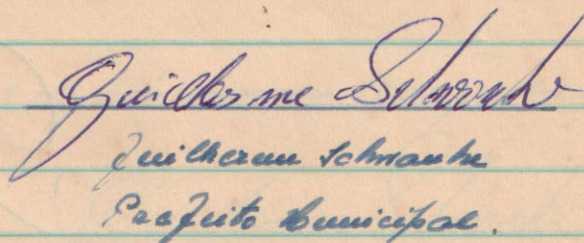 Guilherme Schrank
Guilherme Schranke
Prefeito Municipal.